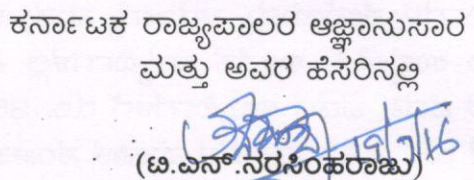 ಕರ್ನಾಟಕ ರಾಜ್ಯಪಾಲರ ಆಜ್ಞಾನುಸಾರ
ಮತ್ತು ಅವರ ಹೆಸರಿನಲ್ಲಿ
19/7/16
(ಟಿ.ಎನ್.ನರಸಿಂಹರಾಜು)